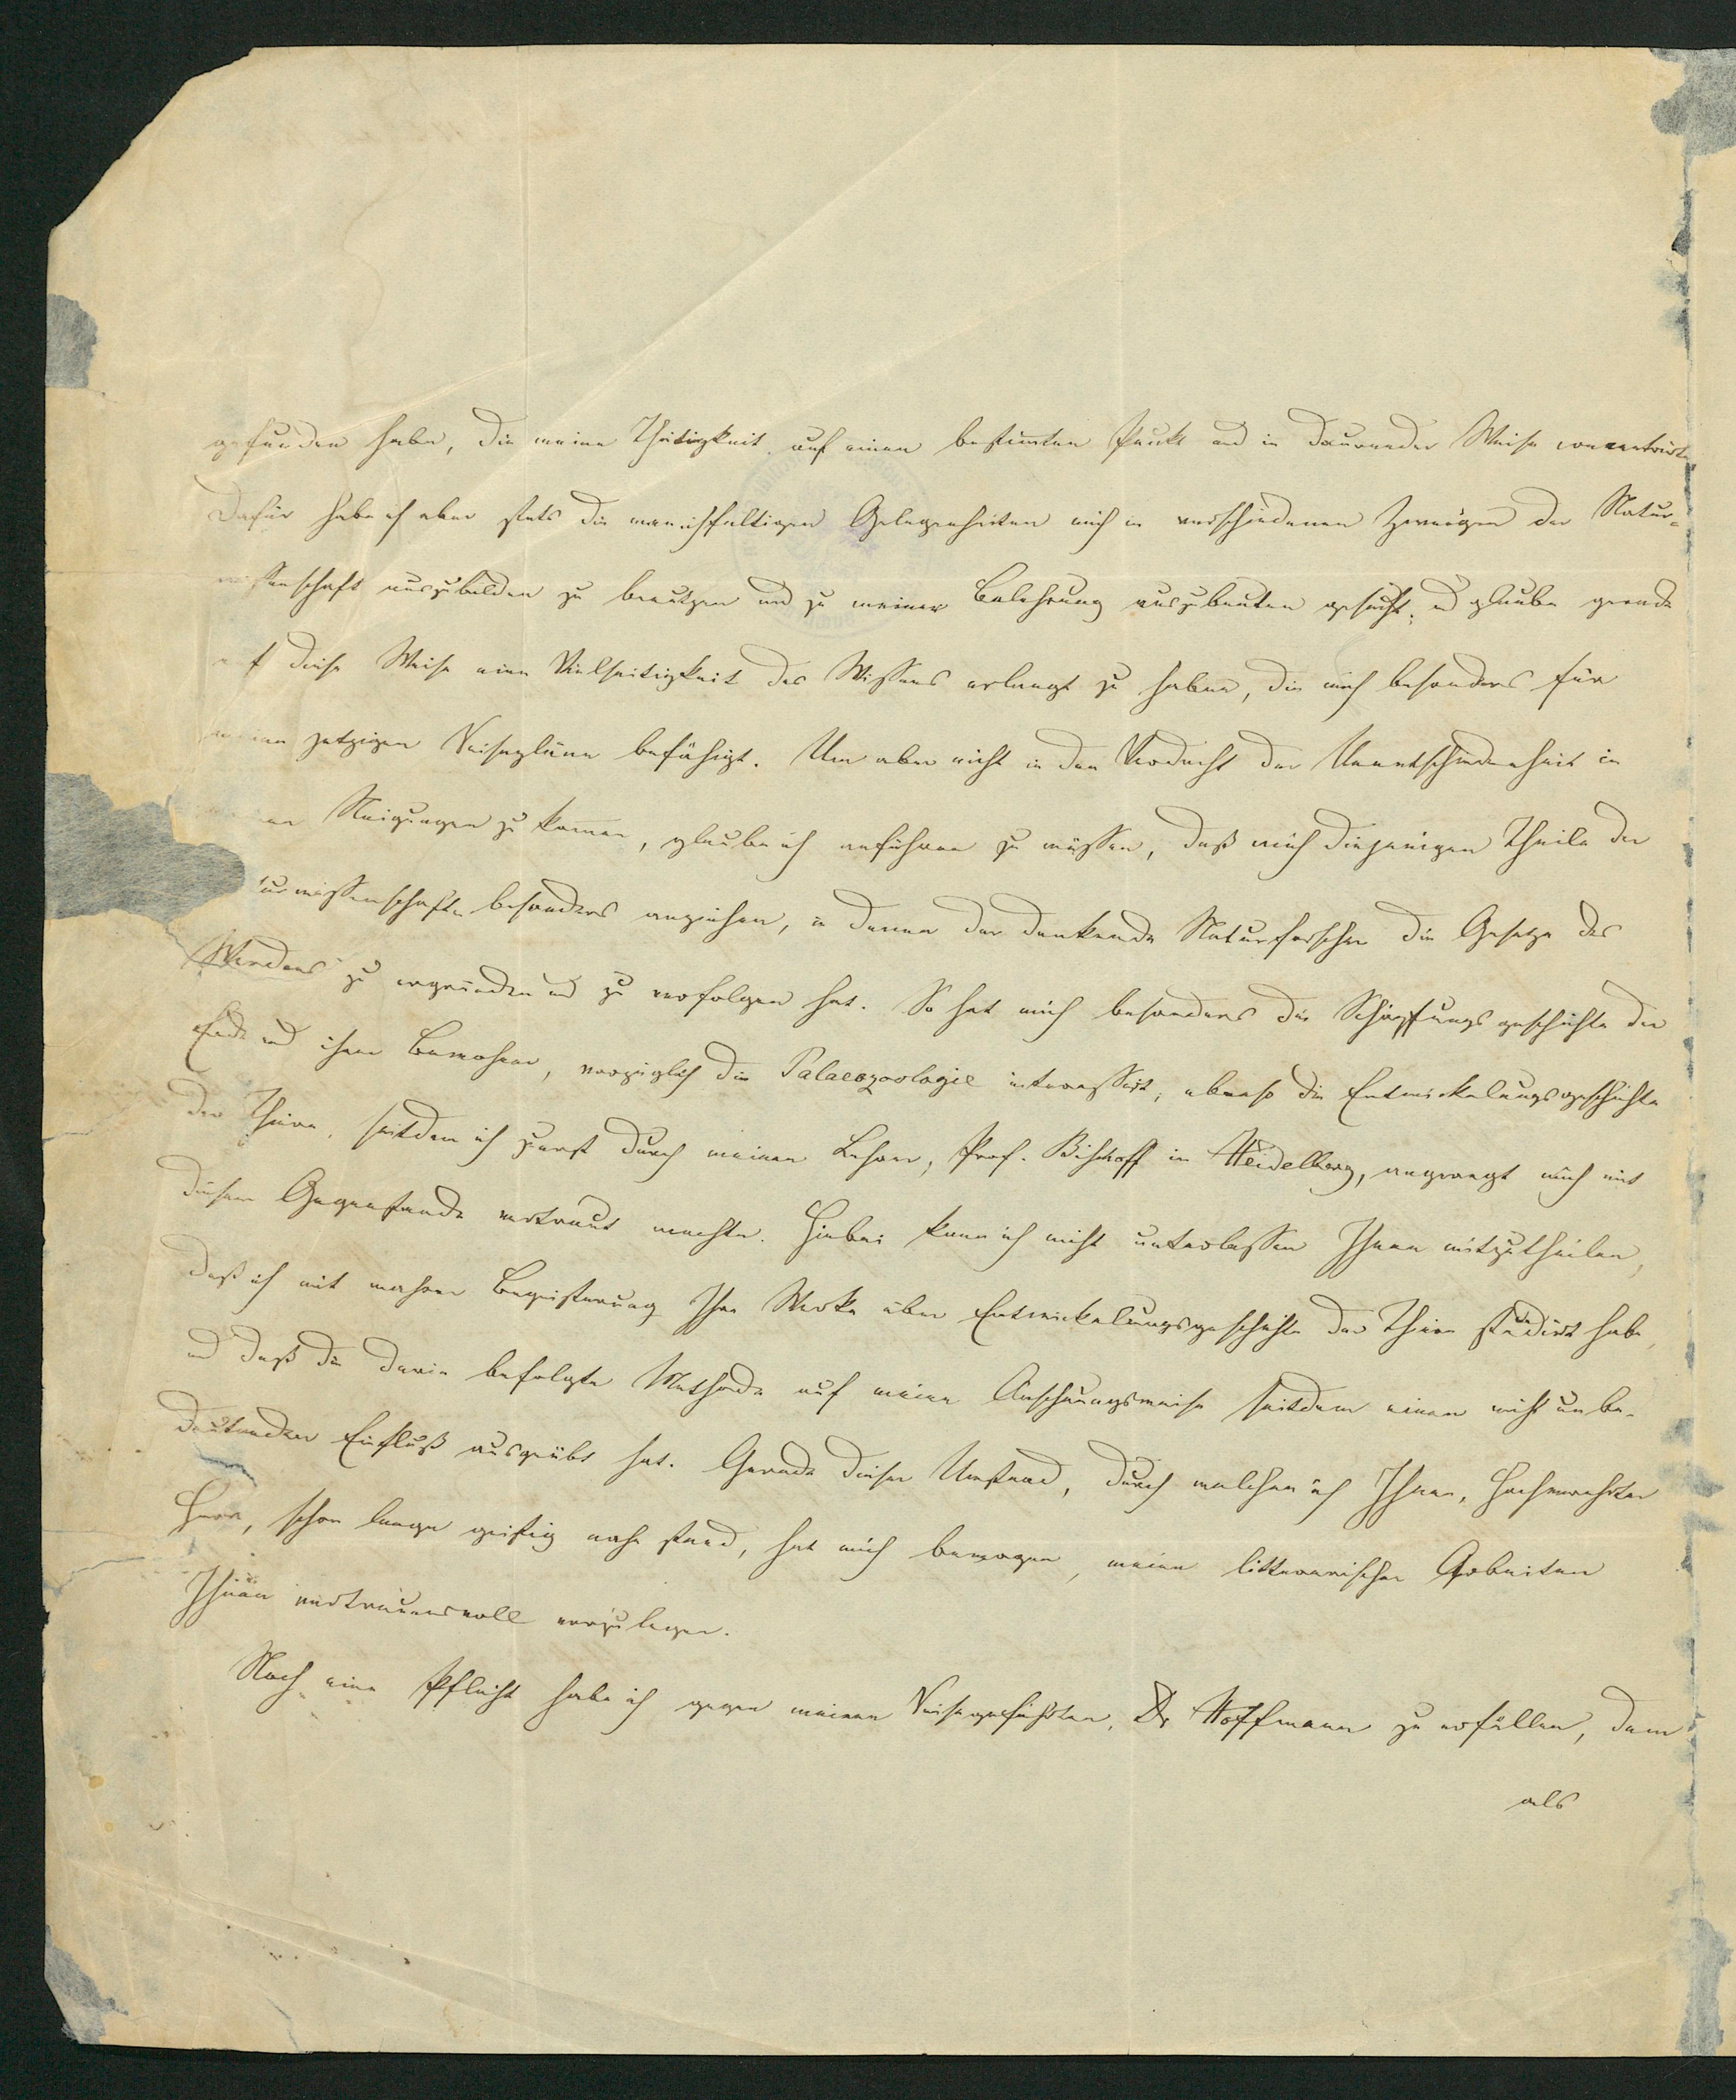 gefunden habe, die meine Thätigkeit auf einen bestimmten Punkt und in dauernder Weise concentrirte
Dafür habe ich aber stets die mannichfaltigen Gelegenheiten mich in verschiedenen Zweigen der Natur-
wissenschaft auszubilden zu benutzen und zu meiner Belehrung auszubeuten gesucht; und glaube gerade
auf diese Weise eine Vielseitigkeit des Wissens erlangt zu haben, die mich besonders für
meine jetzigen Reisepläne befähigt. Um aber nicht in den Verdacht der Unentschiedenheit in
Neigungen zu kommen, glaube ich anführen zu müssen, daß mich diejenigen Theile der
urwissenschaften besonders anziehen, in denen der denkende Naturforscher die Gesetze des
Werdens zu ergründen und zu verfolgen hat. So hat mich besonders die Schöpfungsgeschichte der
Erde und ihrer Bewohner, vorzüglich die Palaeozoologie interessirt, ebenso die Entwickelungsgeschichte
der Thiere, seitdem ich zuerst durch meinen Lehrer, Prof. Bischoff in Heidelberg, angeregt mich mit
diesem Gegenstande vertraut machte. Hiebei kann ich nicht unterlassen Ihnen mitzutheilen,
daß ich mit wahrer Begeisterung Ihre Werke über Entwickelungsgeschichte der Thiere studirt habe,
und daß die darin befolgte Methode auf meine Anschauungsweise seitdem einen nicht unbe-
deutenden Einfluß ausgeübt hat. Gerade dieser Umstand, durch welchen ich Ihnen, Hochverehrter
Herr, schon lange geistig nahe stand, hat mich bewogen, meine litterarischen Arbeiten
Ihnen vertrauensvoll vorzulegen.
Noch eine Pflicht habe ich gegen meinen Reisegefährten, Dr Hoffmann zu erfüllen, dem
als